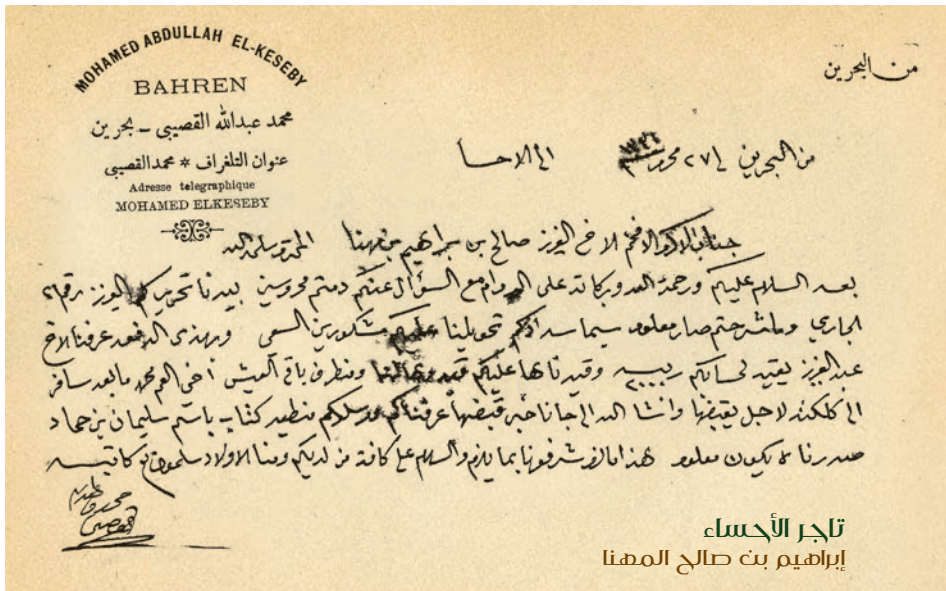 MOHAMED ABDULLAH EL-KESEBY
BAHREN
محمد عبدالله القصيبي - بحرين
عنوان التلغراف * محمد القصيبي
Adresse telegraphique
MOHAMED ELKESEBY
من البحرين
من البحرين في ٢٧ محرم الى الاحسا
جناب الاكرم الافخم الاخ العزيز صالح بن براهيم بن مهنا المحترم سلمه الله
بعد السلام عليكم ورحمة الله وبركاته على الدوام مع السؤال عنكم دمتم محروسين بيدنا تحريركم العزيز رقم
الجاري وما شرحتم صار معلوم سيما سدادكم تحويلنا عليكم مشكورين السعي وبهذه الدفعه عرفنا الاخ
عبدالعزيز يقيد لحسابكم وقيدناها عليكم باقي العيش اخي العم محمد ما بعد سافر
الى كلكته لاجل يقبضها وانشا الله الى جانا خبر قبضها عرفناكم كتاب باسم سليمان بن حماد
صدرنا يكون معلوم هذا ما لزم شرفونا بما يلزم والسلام على كافة من لديكم ومنا الاولاد يسلمون
محمد
القصيبي
تاجر الأحساء
إبراهيم بن صالح المهنا